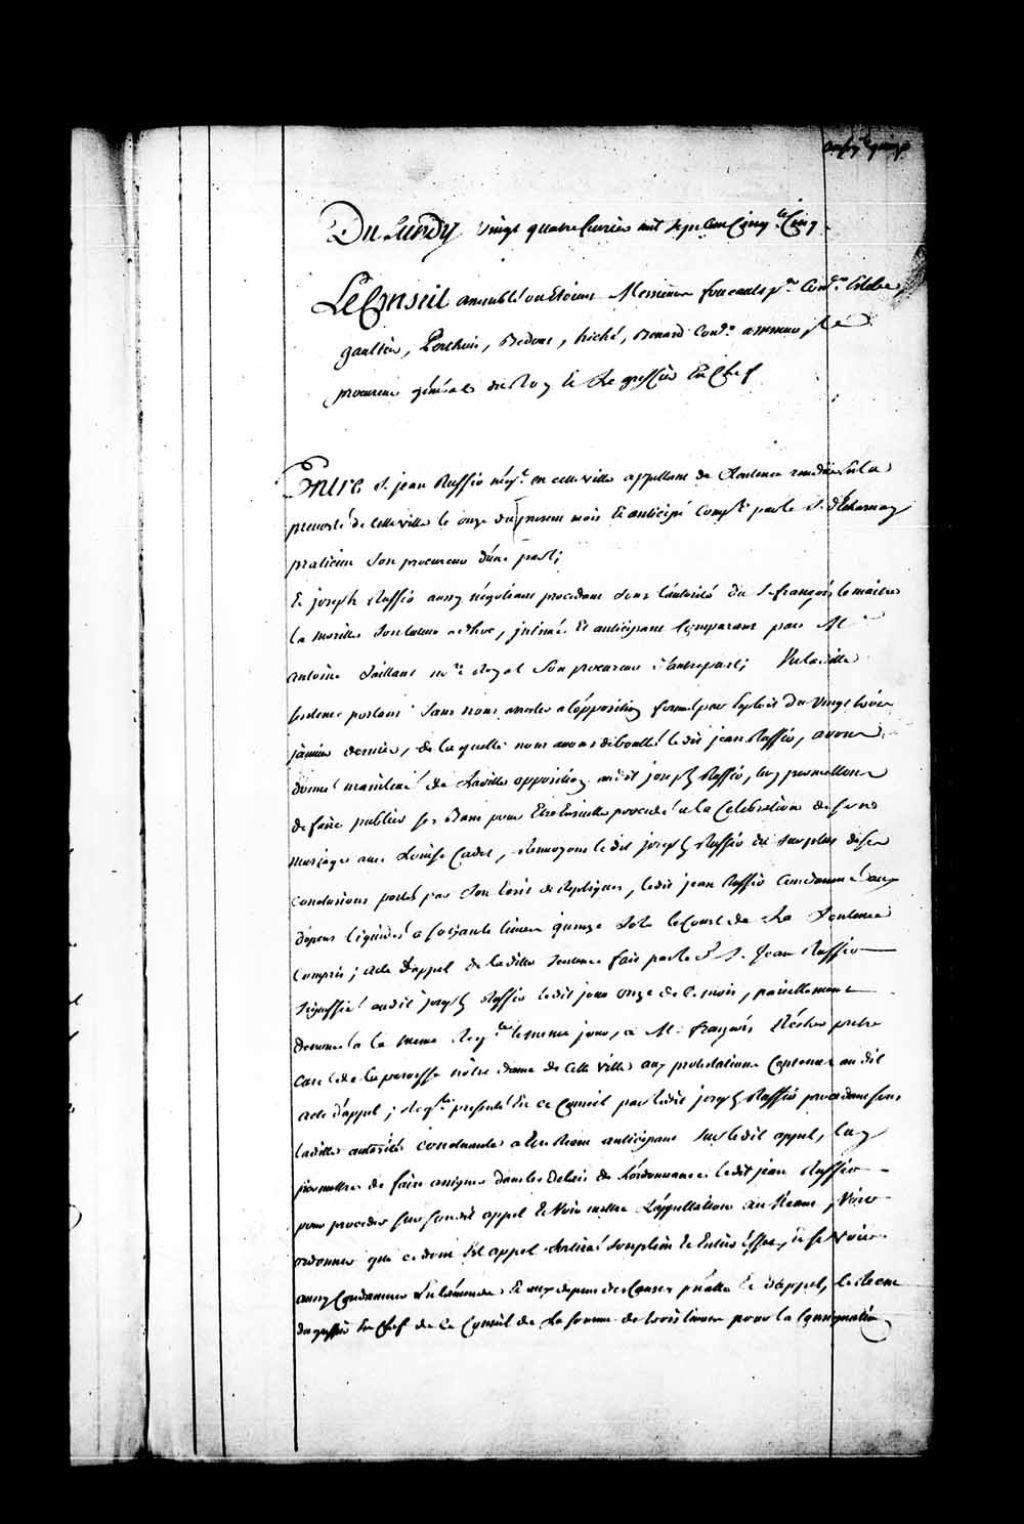 Du Lundy vingt quatre fevrier mil sept cent Cinqte Cinq
Le Conseil assemblé ou Etoient Messieurs foucault pr Conser
gaultier, Perthuis, Bedout, hiché, Benard Conrs assesseur, Le
procureur général du Roy Et Le greffier En Chef
Entre S. jean Ruffio négt. en cette ville appellant de Sentence rendüe En la
prevosté de cette ville le onze du present mois Et anticipé Compt. par le S. dEcharnay
praticien Son procureur d'une part;
Et joseph Ruffio aussy négotiant procedant Sous l'autorité du S. françois le maitre
la morille Son tuteur ad hoc, intimé Et anticipant Comparant par Me
antoine Saillant nre Royal Son procureur d'autre part; Vu ladite
Sentence portant Sans nous arreter a l'opposition formée par Exploit du vingt trois
janvier dernier, de laquelle nous avons debouté ledit jean Ruffio, avons
donné mainlevée de Ladite opposition audit joseph Ruffio, luy permettons
de faire publier ses Bans pour Etre Ensuitte procedé a la Celebration de son
mariage avec Louise Cadet, Renvoyons ledit joseph Ruffio du surplus de ses
conclusions portées par Son Ecrit de Repliques, ledit jean Ruffio Condamné aux
depens liquidés a soixante livres quinze Sols le Cout de La Sentence
Compris; acte d'appel de ladite Sentence fait par le d. S. Jean Ruffio
Signiffié audit joseph Ruffio ledit jour onze de ce mois, pareillement
denoncé a la meme Reqte le meme jour, a Me françois Récher pretre
Curé de la paroisse nôtre dame de cette ville aux protestations Contenues audit
acte d'appel; Reqte presentée En ce Conseil par ledit joseph Ruffio procedant sous
ladite autorité concluante a Etre Recu anticipant Sur ledit appel, luy
permettre de faire assigner dans les Delais de L'ordonnance ledit jean Ruffio
pour proceder sur son dit appel Et Voir mettre L'appellation au Neant, Voir
ordonner que ce dont Est appel Sortira Son plein Et Entier Effet, Et se voir
aussy Condamner En l'amende Et aux depens des Causes pñalle Et d'appel,
du greffier En Chef de Ce Conseil de La somme de trois livres pour la Consignation